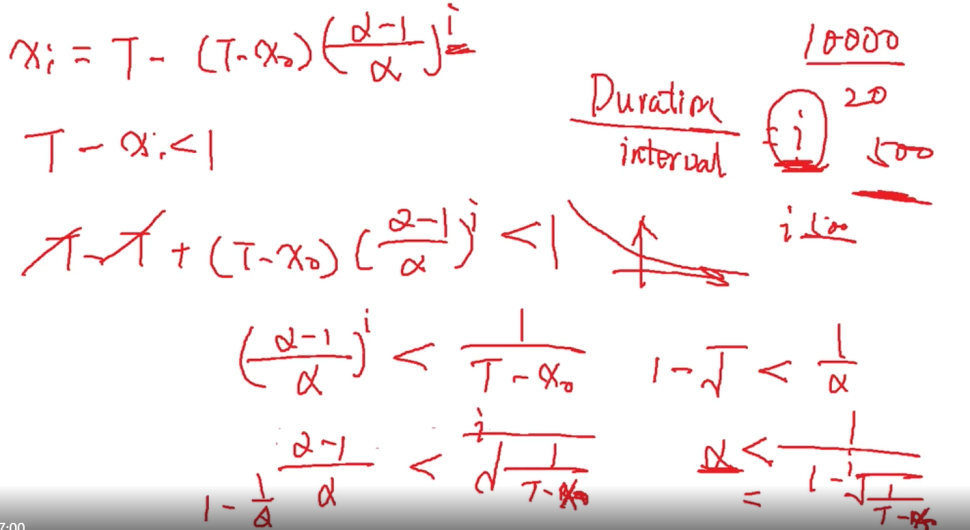 xᵢ = T - (T-x₀)((α-1)/α)^i
T - xᵢ < 1
T - T + (T-x₀)((α-1)/α)^i < 1
((α-1)/α)^i < 1/(T-x₀)
(α-1)/α < ⁱ√(1/(T-x₀))
1 - 1/α
Duration/interval = i
10000
20
500
i 500
1 - √ < 1/α
α < 1/(1 - ⁱ√(1/(T-x₀)))
=
7:00